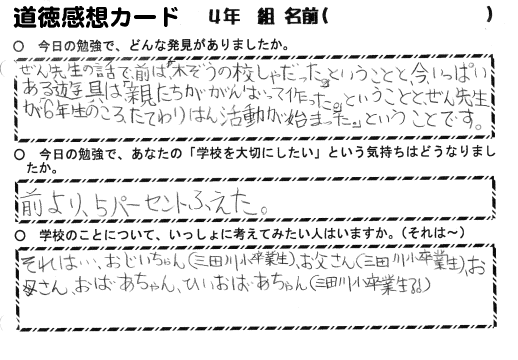 道徳感想カード　4年　組 名前(　　　　　)
○　今日の勉強で、どんな発見がありましたか。
ぜん先生の話で、前は『木ぞうの校しゃだった。』ということと、今、いっぱい
ある遊具は『親たちががんばって作った。』ということとぜん先生
が6年生のころ、たてわりはん活動が始まった。』ということです。
○　今日の勉強で、あなたの「学校を大切にしたい」という気持ちはどうなりまし
たか。
前より、5パーセントふえた。
○　学校のことについて、いっしょに考えてみたい人はいますか。（それは～）
それは…、おじいちゃん(三田川小卒業生)、お父さん(三田川小卒業生)、お
母さん、おばあちゃん、ひいおばあちゃん(三田川小卒業生)